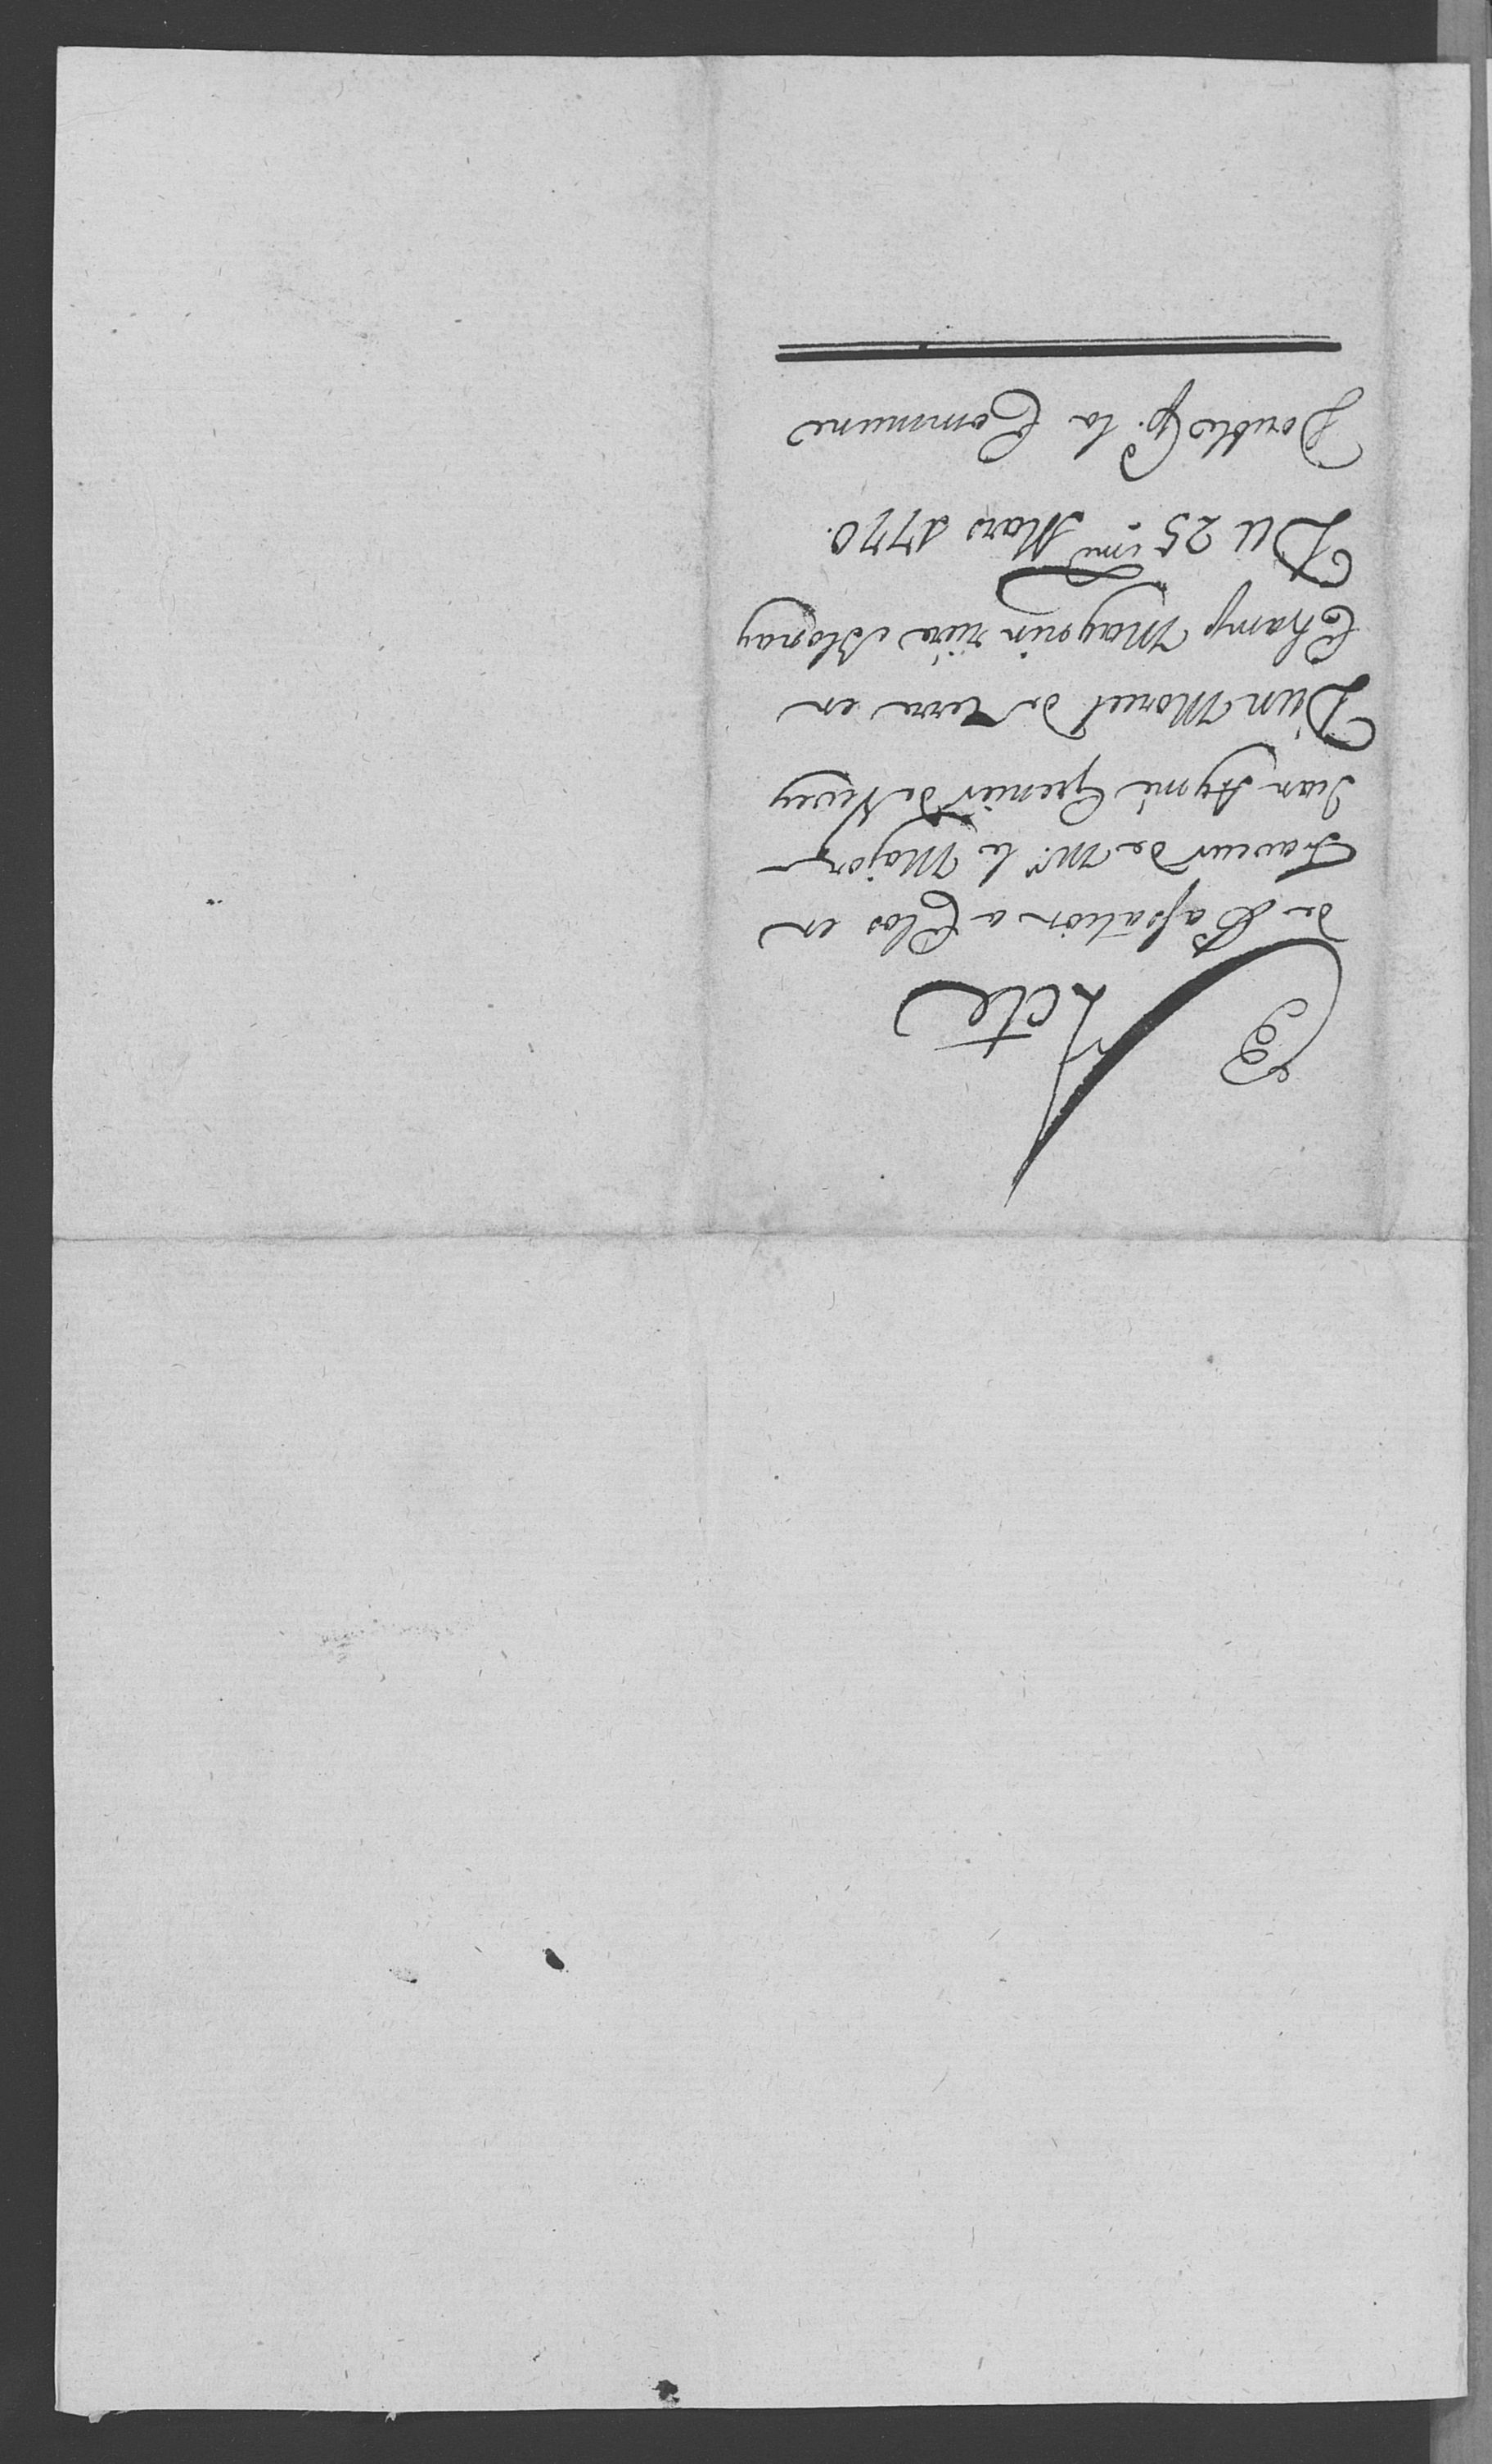 Acte
de Passation a Clos en
Faveur de Mr. le Major
Jean Aymé Grenier de Vevey
D'un Morcel de Terre en
Champ Magnin riere Blonay
Du 25.ime Mars 1770.
Double p.r la Commune